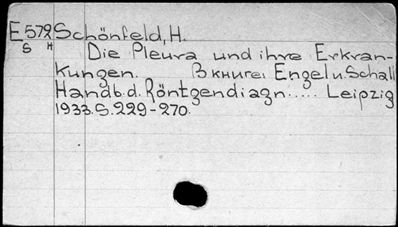 E572 Schönfeld, H.
S H Die Pleura und ihre Erkran-
kungen. В книге: Engel u. Schall
Handb. d. Röntgendiagn..... Leipzig
1933. S. 229-270.